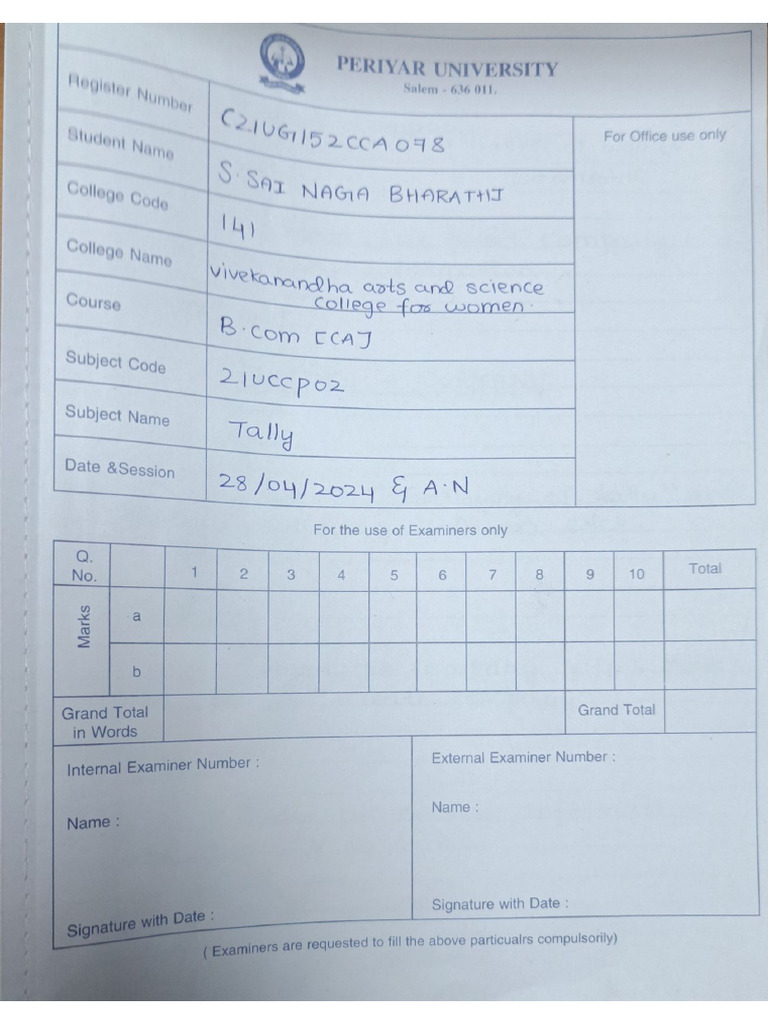 PERIYAR UNIVERSITY
Salem - 636 011.
Register Number C21UG152CCA078
For Office use only
Student Name S. SAI NAGA BHARATHI
College Code 141
College Name vivekanandha arts and science
college for women.
Course B.com [CA]
Subject Code 21UCCP02
Subject Name Tally
Date &Session 28/04/2024 & A.N
For the use of Examiners only
Q. No. 1 2 3 4 5 6 7 8 9 10 Total
Marks
a
b
Grand Total in Words
Grand Total
Internal Examiner Number :
External Examiner Number :
Name :
Name :
Signature with Date :
Signature with Date :
( Examiners are requested to fill the above particualrs compulsorily)